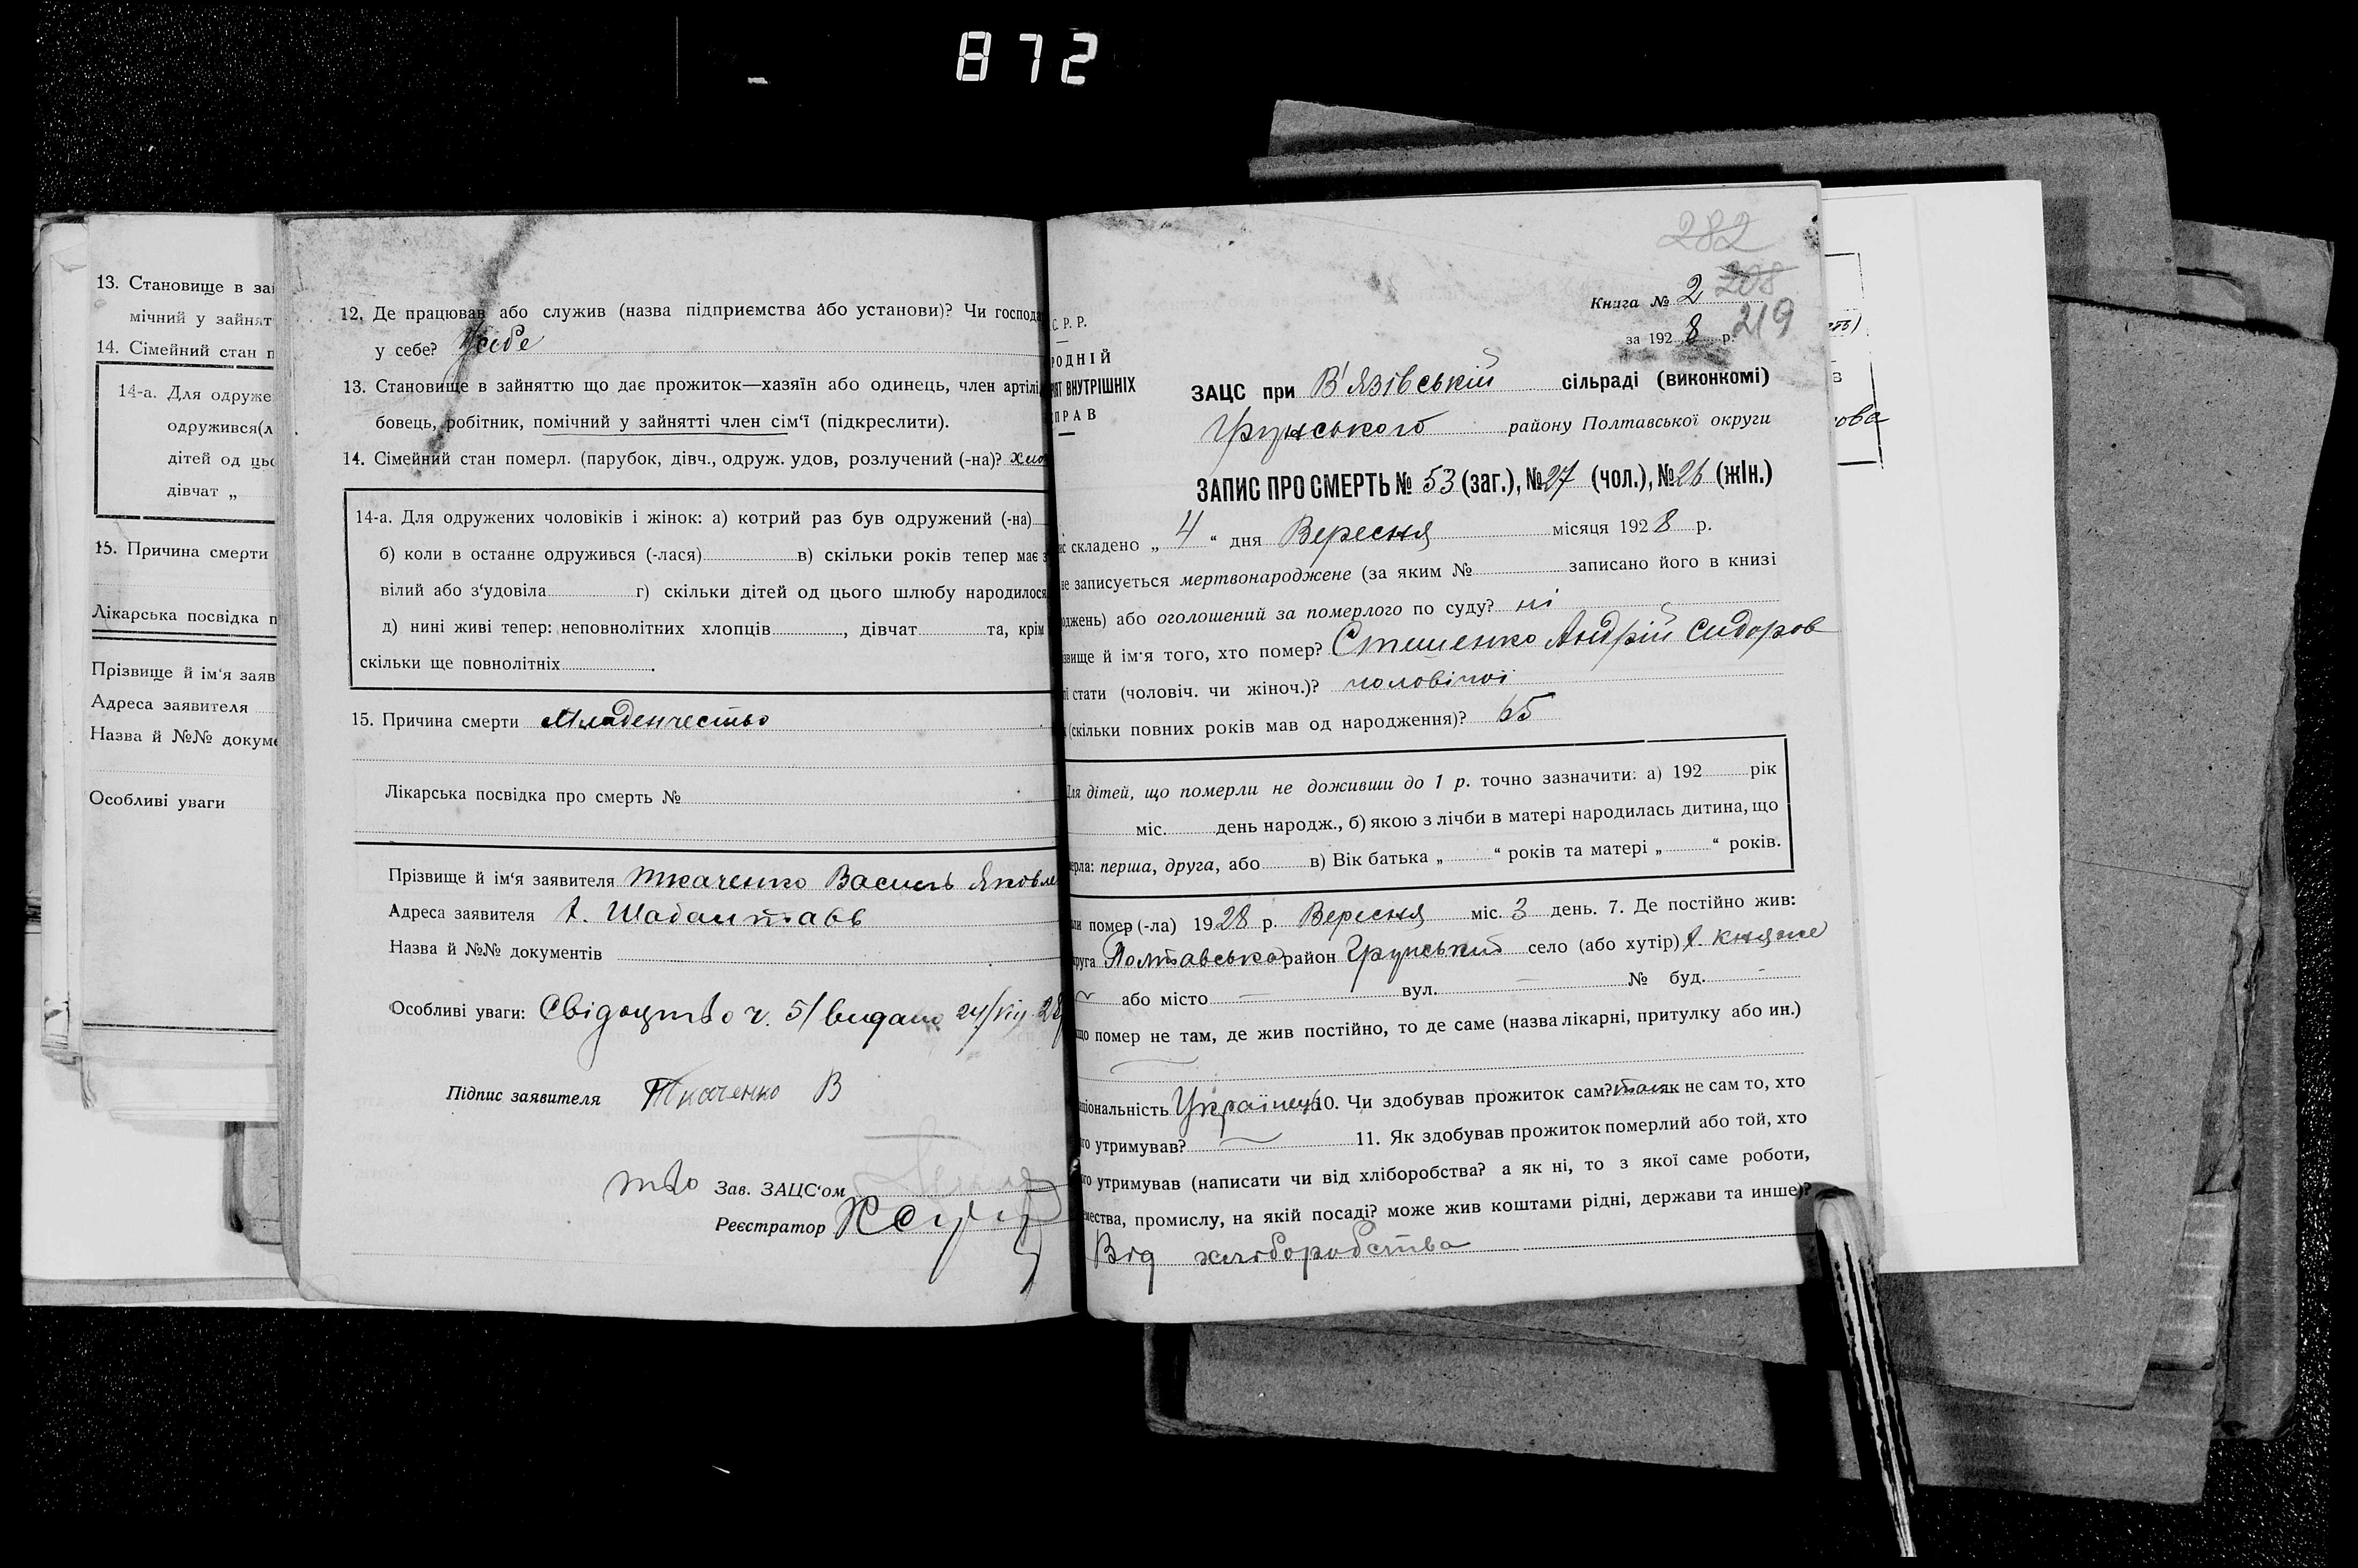 872
13. Становище в за
мічний у зайнят
14. Сімейний стан п
14-а. Для одруже
одружився(л
дітей од ць
дівчат „
15. Причина смерти
Лікарська посвідка п
Прізвище й ім'я заяв
Адреса заявителя
Назва й №№ докуме
Особливі уваги
12. Де працював або служив (назва підприємства або установи)? Чи господа
у себе? У себе
13. Становище в зайняттю що дає прожиток—хазяїн або одинець, член артілі
бовець, робітник, помічний у зайнятті член сім'ї (підкреслити).
14. Сімейний стан померл. (парубок, дівч., одруж. удов, розлучений (-на)? хло
14-а. Для одружених чоловіків і жінок: а) котрий раз був одружений (-на)
б) коли в останнє одружився (-лася) в) скільки років тепер має з
вілий або з'удовіла г) скільки дітей од цього шлюбу народилося
д) нині живі тепер: неповнолітних хлопців , дівчат та, крім
скільки ще повнолітніх .
15. Причина смерти Младенчество
Лікарська посвідка про смерть №
Прізвище й ім'я заявителя Ткаченко Василь Яковле
Адреса заявителя х. Шабалтаєв
Назва й №№ документів
Особливі уваги: Свідоцтво ч. 51 видано 24/VIII 28
Підпис заявителя Ткаченко В
тво Зав. ЗАЦС'ом
Реєстратор
282
Книга № 2 208
219
за 1928 р.
С. Р. Р.
РОДНІЙ
РЯТ ВНУТРІШНІХ
ПРАВ
ЗАЦС при В'язівській сільраді (виконкомі)
Грунського району Полтавської округи
ЗАПИС ПРО СМЕРТЬ № 53 (заг.), № 27 (чол.), № 26 (жін.)
с складено „ 4 “ дня Вересня місяця 1928 р.
не записується мертвонароджене (за яким № записано його в книзі
оджень) або оголошений за померлого по суду? ні
звище й ім'я того, хто помер? Стешенко Андрій Сидоров
ї стати (чоловіч. чи жіноч.)? чоловічої
(скільки повних років мав од народження)? 65
Для дітей, що померли не доживши до 1 р. точно зазначити: а) 192 рік
міс. день народж., б) якою з лічби в матері народилась дитина, що
ерла: перша, друга, або в) Вік батька „ “ років та матері „ “ років.
ли помер (-ла) 1928 р. Вересня міс. 3 день. 7. Де постійно жив:
круга Полтавська район Грунський село (або хутір) х. Княже
або місто — вул. — № буд. -
що помер не там, де жив постійно, то де саме (назва лікарні, притулку або ин.)
ціональність Українець 10. Чи здобував прожиток сам? так як не сам то, хто
го утримував? 11. Як здобував прожиток померлий або той, хто
го утримував (написати чи від хліборобства? а як ні, то з якої саме роботи,
мества, промислу, на якій посаді? може жив коштами рідні, держави та инше)?
Від хліборобства
ова